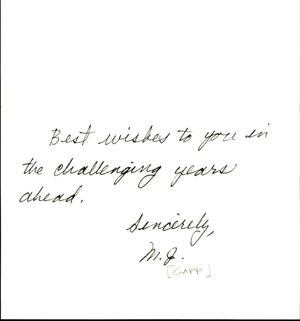 Best wishes to you in
the challenging years
ahead.
Sincerely,
M.J.
[GAPP]